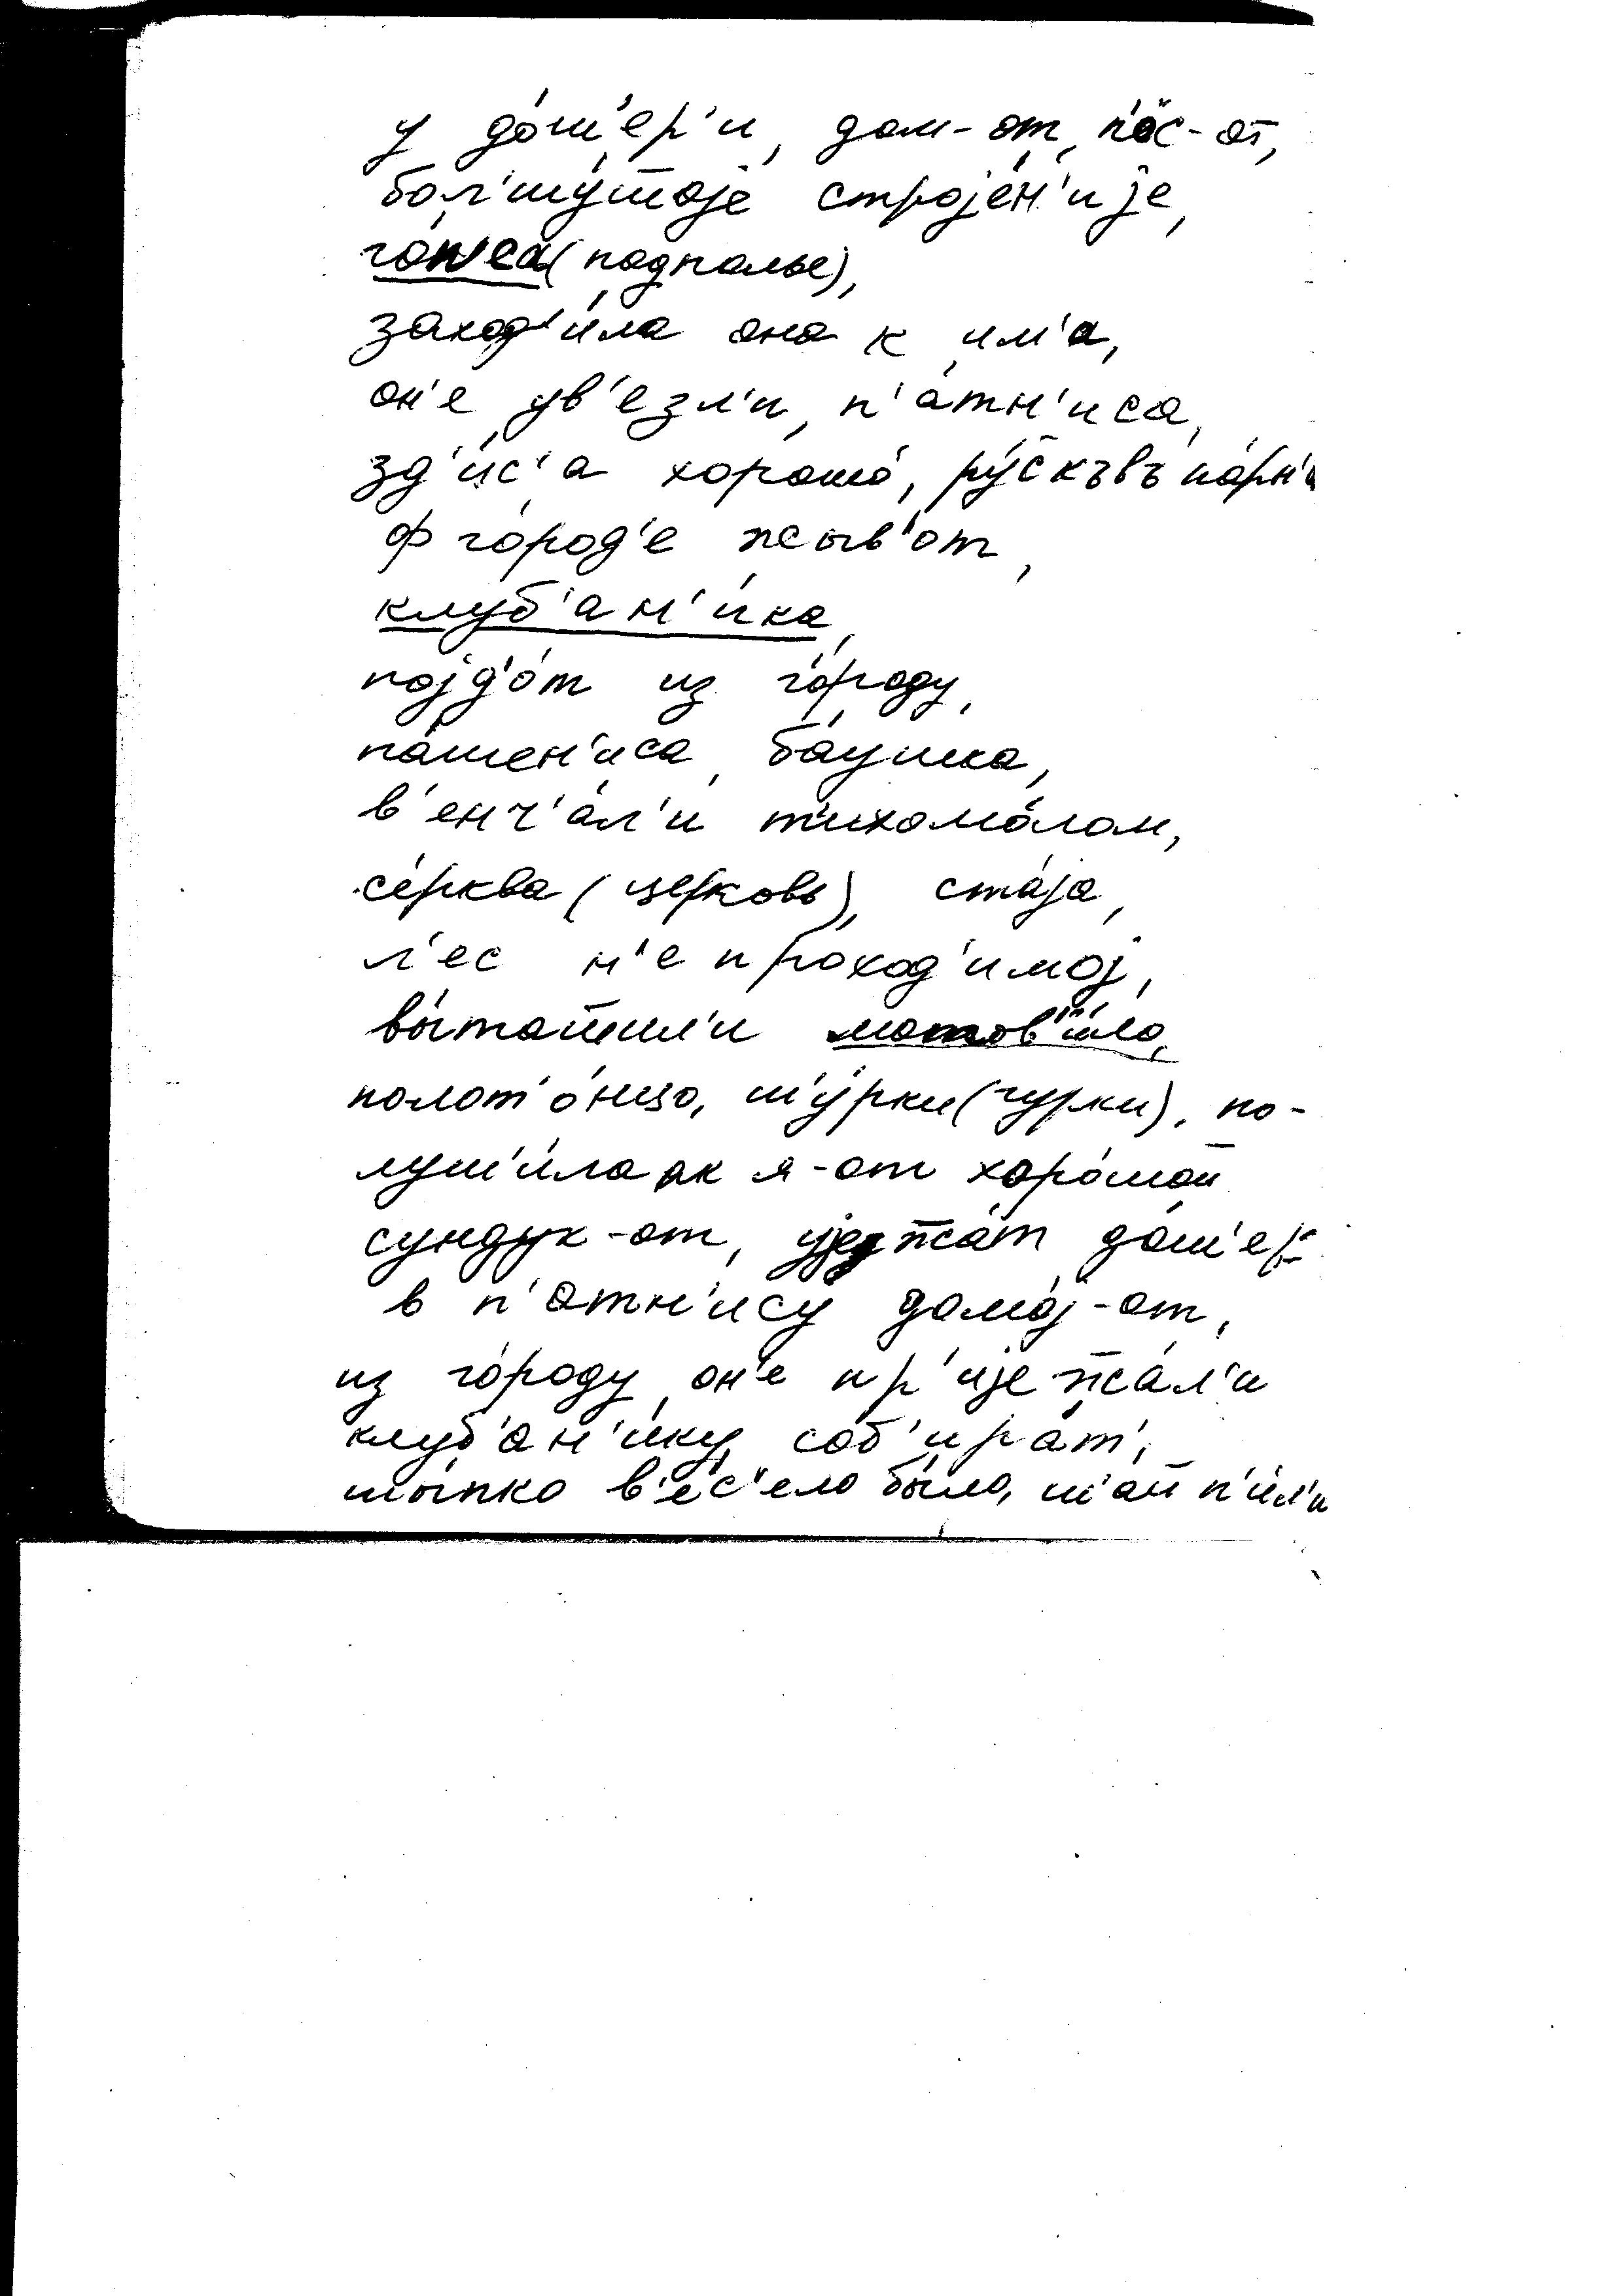 у до́ш'ер'и, дом-от, п'о́с-от,
бол'шу́шоjе строjе́н'иjе,
(подполье),
заход'и́ла она к им'а,
он'е ув'езл'и, п'а́тн'иса,
зд'и́с'а хорошо́, ру́с̄къвъ па́рн'и
ф го́род'е жыв'от,
клуб'ан'и́ка,
поjд'о́т из го́роду,
па́шен'иса, ба́ушка,
в'енч'а́л'и т'ихома́лом,
се́рква (церковь), ста́jа,
л'ес н'епроход'имоj,
вы́ташшил'и мотов'и́ло,
полот'о́нцо, ш'у́рки (чурки), по-
луш'и́ла ак я-от хоро́шой
сунду́к-от, уjеж̄а́т до́ш'ер'
в п'а́тн'ису домо́j-от,
из го́роду он'е пр'иjеж̄а́л'и
клуб'ан'и́ку соб'ира́т',
шы́пко в'е́с'ело было, ш'ай п'и́л'и